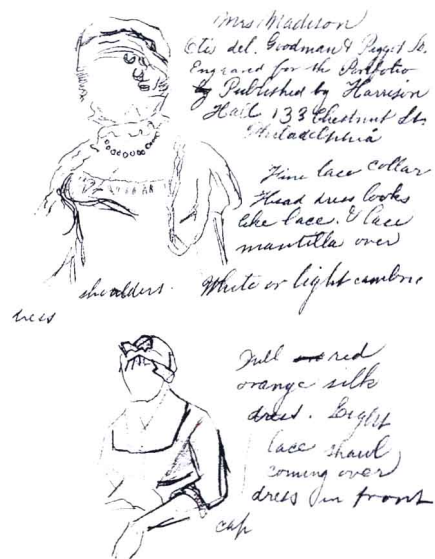 Mrs Madison
Otis del. Goodman & Piggot Sc.
Engraved for the Portfolio
by Published by Harrison
Hall 133 Chestnut St.
Philadelphia
Fine lace collar
Head dress looks
like lace. & lace
mantilla over
shoulders. White or light cambric
dress
Dull red
orange silk
dress. Light
lace shawl
coming over
dress in front
cap